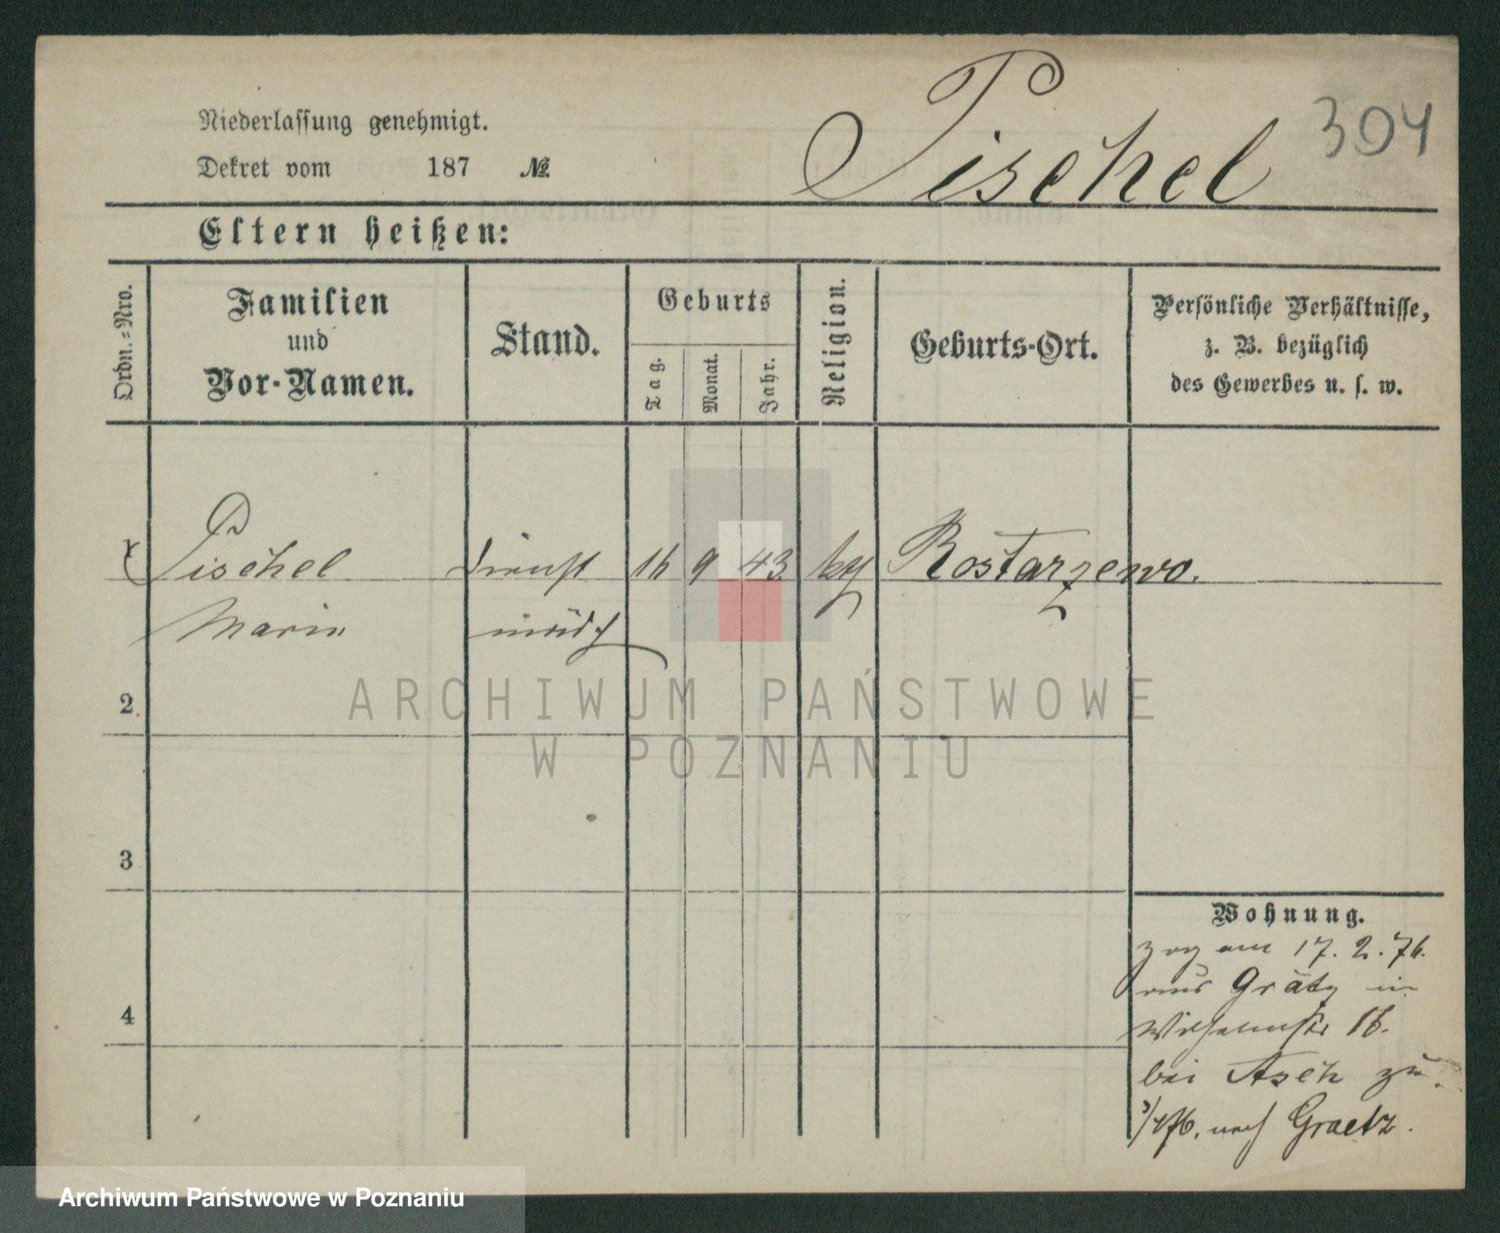 304
Pischel
Niederlassung genehmigt.
Dekret vom 187 №
Eltern heißen:
Ordn.-Nro.
Familien
und
Vor-Namen.
Stand.
Geburts
Tag.
Monat.
Jahr.
Religion.
Geburts-Ort.
Persönliche Verhältnisse,
z. B. bezüglich
des Gewerbes u. s. w.
Pischel Dienst 16 9 43. Rostarzewo.
Marie mädch
2
3
4
Wohnung.
zog am 17. 2. 76.
aus Grätz in
Wilhelmstr 16.
bei Asch zu.
nach Graetz.
ARCHIWUM PAŃSTWOWE
W POZNANIU
Archiwum Państwowe w Poznaniu